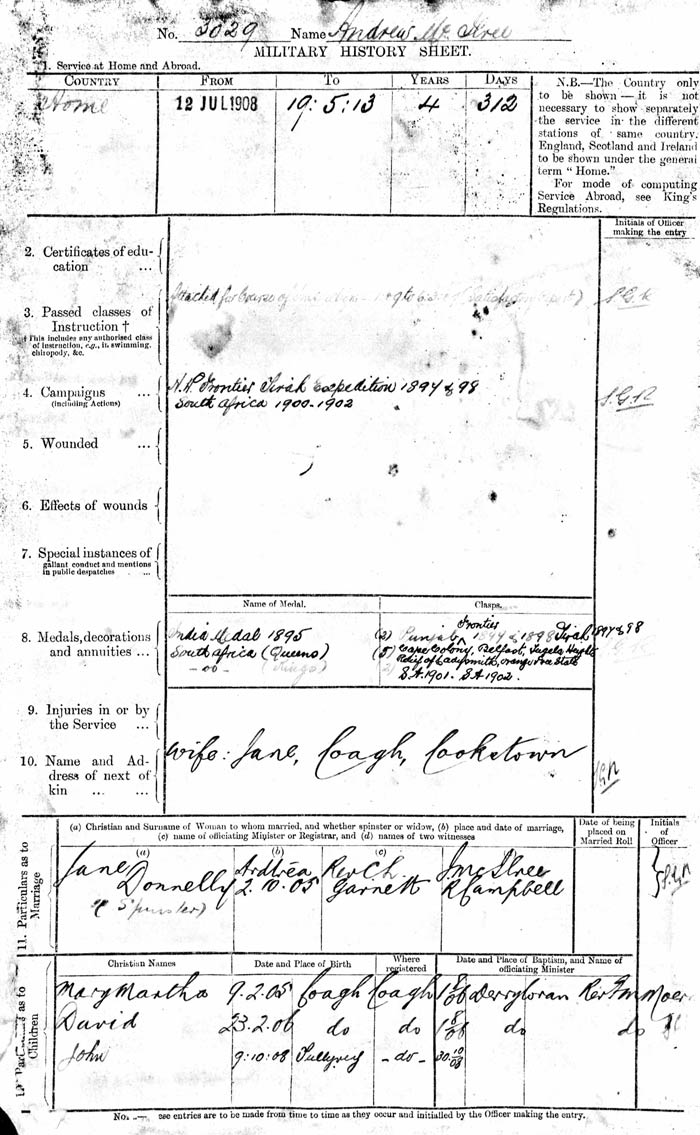 No. 3029 Name Andrew Mc Ilree
MILITARY HISTORY SHEET.
1. Service at Home and Abroad.
COUNTRY FROM TO YEARS DAYS
Home 12 JUL 1908 19: 5: 13 4 312
N.B.—The Country only
to be shown — it is not
necessary to show separately
the service in the different
stations of same country.
England, Scotland and Ireland
to be shown under the general
term "Home."
For mode of computing
Service Abroad, see King's
Regulations.
Initials of Officer
making the entry
2. Certificates of edu-
cation ...
3. Passed classes of
Instruction †
† This includes any authorised class
of instruction, e.g., in swimming,
chiropody, &c.
Attached for Course of
4. Campaigns ...
(including Actions)
N.W. Frontier Tirah Expedition 1897 & 98
South Africa 1900-1902
S.G.R
5. Wounded ...
6. Effects of wounds
7. Special instances of
gallant conduct and mentions
in public despatches ...
Name of Medal. Clasps.
8. Medals, decorations
and annuities ...
India Medal 1895 (2) Punjab Frontier 1897 & 1898 Tirah 1897 & 98
South Africa (Queens) (5) Cape Colony, Belfast, Tugela Heights
Relief of Ladysmith, Orange Free State
- do - (Kings) (2) S.A. 1901. S.A 1902.
9. Injuries in or by
the Service ...
10. Name and Ad-
dress of next of
kin ... ...
Wife: Jane, Coagh, Cookstown
11. Particulars as to
Marriage
(a) Christian and Surname of Woman to whom married, and whether spinster or widow, (b) place and date of marriage,
(c) name of officiating Minister or Registrar, and (d) names of two witnesses
Date of being
placed on
Married Roll
Initials
of
Officer
(a) (b) (c)
Jane Ardtrea Rev Ch. J. Mc Ilree
Donnelly 2.10.05 Garnett R Campbell
(Spinster)
Particulars as to
Children
Christian Names Date and Place of Birth Where
registered Date and Place of Baptism, and Name of
officiating Minister
Mary Martha 9.2.05 Coagh Coagh Derryloran Rev
David 23.2.06 do do do do
John 9:10:08 Tullyreavy - do -
No. see entries are to be made from time to time as they occur and initialled by the Officer making the entry.